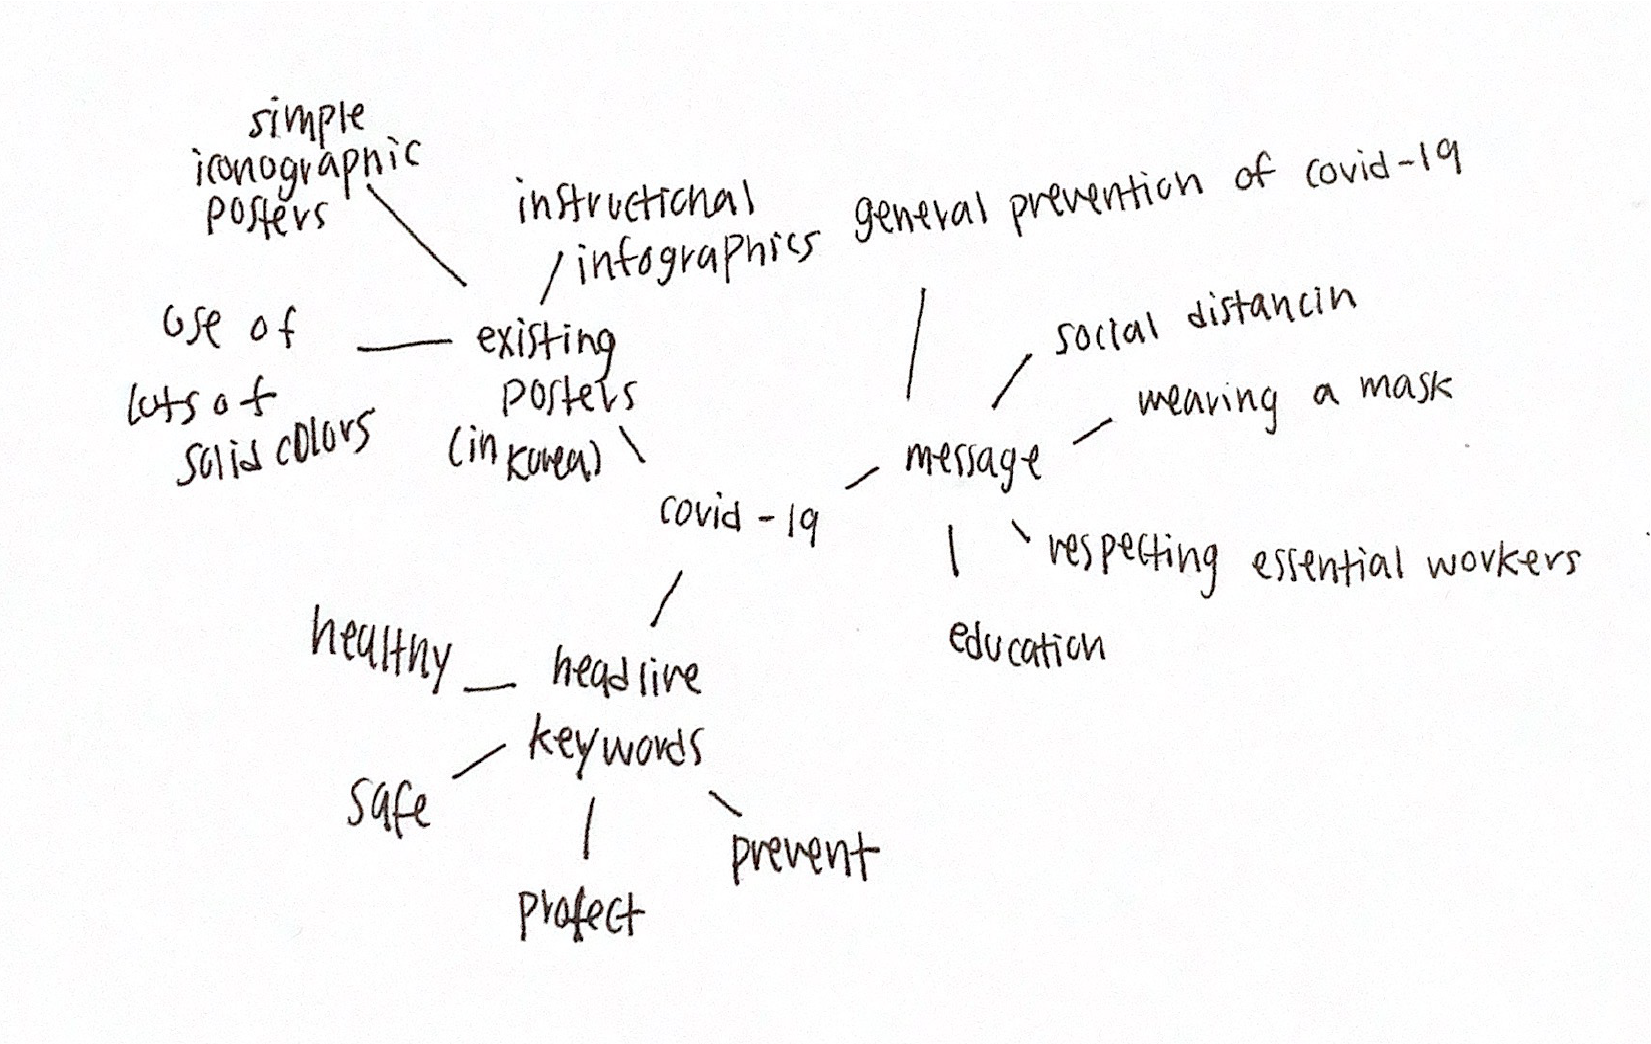 simple
iconographic
posters
instructional
infographics
general prevention of covid-19
use of
lots of
solid colors
existing
posters
(in Korea)
social distancin
wearing a mask
message
covid-19
respecting essential workers
education
healthy
headline
keywords
safe
protect
prevent